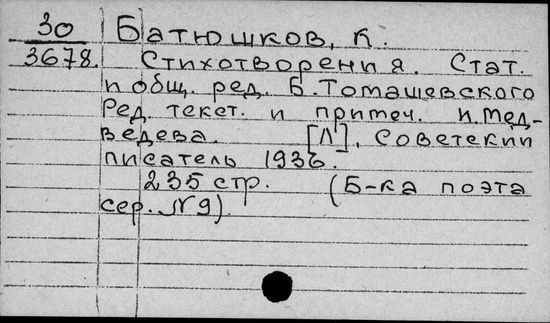 30 Батюшков, К.
3678. Стихотворения. Стат.
и общ. ред. Б. Томашевского
Ред. текст. и примеч. И. Мед-
ведева. [Л], Советский
писатель 1936.
235 стр. (Б-ка поэта
сер. №9).